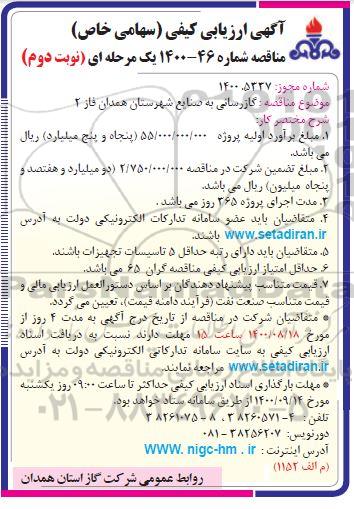 آگهی ارزیابی کیفی (سهامی خاص)
مناقصه شماره ۴۶-۱۴۰۰ یک مرحله ای (نوبت دوم)
شماره مجوز: ۱۴۰۰.۵۳۳۷
موضوع مناقصه : گازرسانی به صنایع شهرستان همدان فاز ۲
شرح مختصر کار:
۱. مبلغ برآورد اولیه پروژه ۵۵/۰۰۰/۰۰۰/۰۰۰ (پنجاه و پنج میلیارد) ریال
می باشد.
۲. مبلغ تضمین شرکت در مناقصه ۲/۷۵۰/۰۰۰/۰۰۰ (دو میلیارد و هفتصد و
پنجاه میلیون) ریال می باشد.
۳. مدت اجرای پروژه ۳۶۵ روز می باشد .
۴. متقاضیان باید عضو سامانه تدارکات الکترونیکی دولت به آدرس
www.setadiran.ir باشند.
۵. متقاضیان باید دارای رتبه حداقل ۵ تاسیسات تجهیزات باشند.
۶. حداقل امتیاز ارزیابی کیفی مناقصه گران ۶۵ می باشد.
۷. قیمت متناسب پیشنهاد دهندگان بر اساس دستورالعمل ارزیابی مالی و
قیمت متناسب صنعت نفت (فرآیند دامنه قیمت)، تعیین می گردد.
* متقاضیان شرکت در مناقصه از تاریخ درج آگهی به مدت ۴ روز از
مورخ ۱۴۰۰/۰۸/۱۸ ساعت ۱۵ مهلت دارند نسبت به دریافت اسناد
ارزیابی کیفی به سایت سامانه تدارکاتی الکترونیکی دولت به آدرس
www.setadiran.ir مراجعه نمایند.
* مهلت بارگذاری اسناد ارزیابی کیفی حداکثر تا ساعت ۰۹:۰۰ روز یکشنبه
مورخ ۱۴۰۰/۰۹/۱۴ از طریق سامانه ستاد خواهد بود.
تلفن : ۴-۳۸۲۶۰۵۷۱ . ۸-۳۸۲۶۱۰۷۵
دورنویس: ۳۸۲۵۶۲۰۷-۰۸۱
آدرس اینترنت : WWW. nigc-hm . ir
(م الف ۱۱۵۲)
روابط عمومی شرکت گاز استان همدان